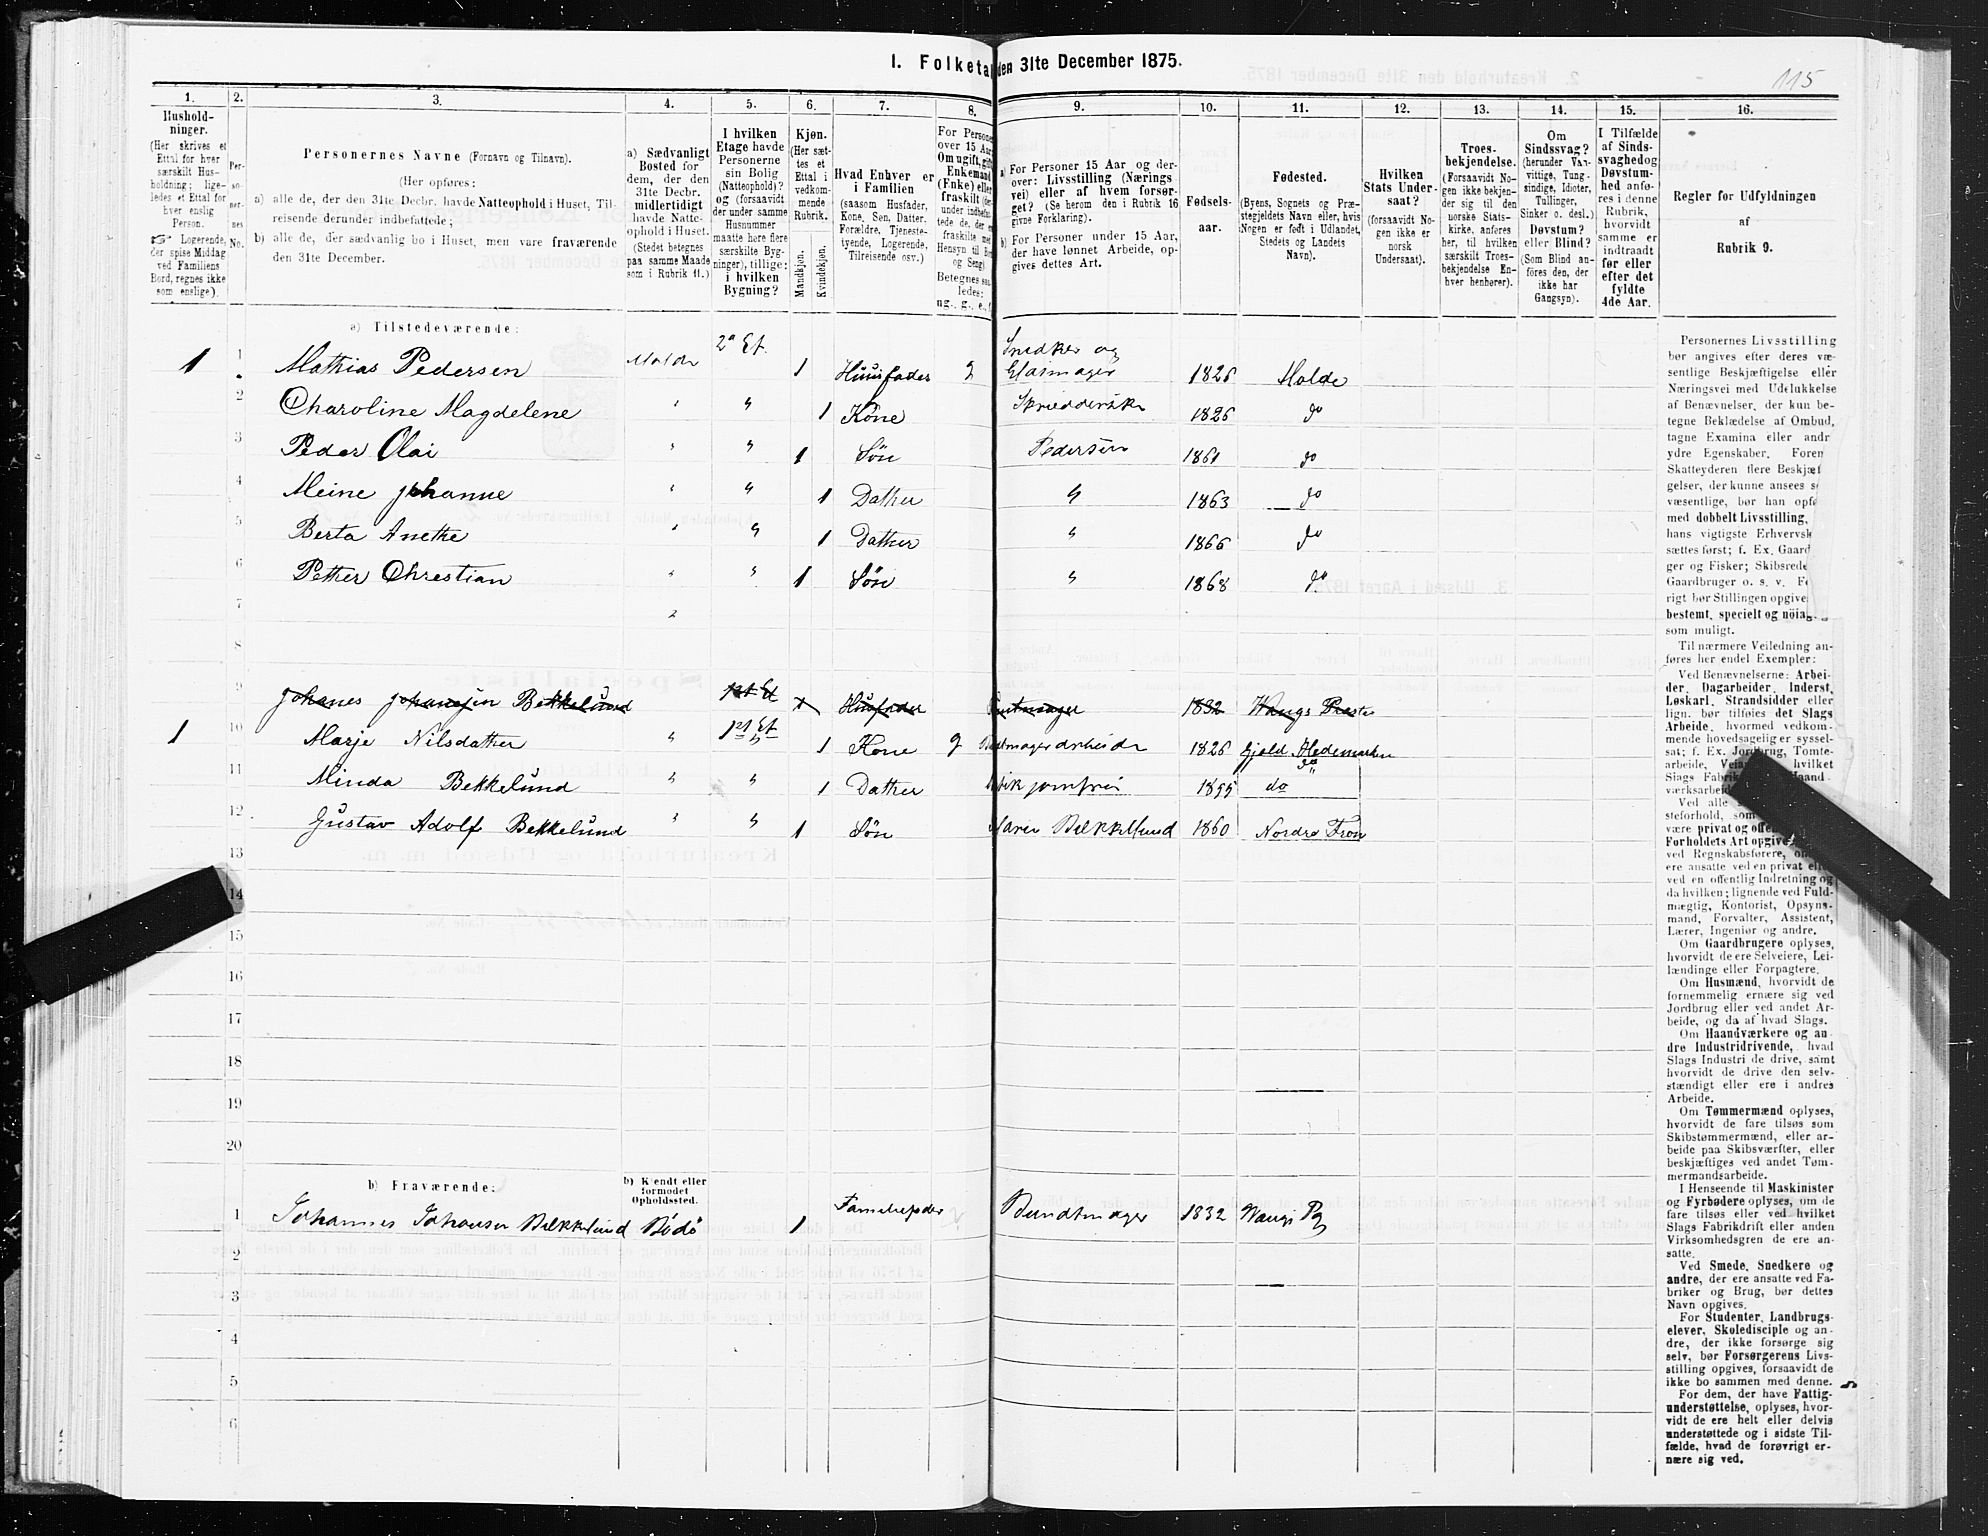 1. Folketal den 31te December 1875.
115
1.
2.
3.
4.
5.
6.
7.
8.
9.
10.
11.
12.
13.
14.
15.
16.
Hushold-
ninger.
(Her skrives et
Ettal for hver
særskilt Hus-
holdning; lige-
ledes et Ettal for
hver enslig
Person.
☞ Logerende,
der spise Middag
ved Familiens
Bord, regnes ikke
som enslige).
Per-
so-
ner-
nes
No.
Personernes Navne (Fornavn og Tilnavn).
(Her opføres:
a) alle de, der den 31te Decbr. havde Natteophold i Huset, Til-
reisende derunder indbefattede;
b) alle de, der sædvanlig bo i Huset, men vare fraværende
den 31te December.
a) Sædvanligt
Bosted for
dem, der den
31te Decbr.
midlertidigt
havde Natte-
ophold i Huset.
(Stedet betegnes
paa samme Maade
som i Rubrik 11.)
I hvilken
Etage havde
Personerne
sin Bolig
(Natteophold)?
og (forsaavidt
der under samme
Husnummer
maatte høre flere
særskilte Byg-
ninger), tillige:
i hvilken
Bygning?
Kjøn.
(Her sæt-
tes et
Ettal i
vedkom-
mende
Rubrik.
Mandkjøn.
Kvindekjøn.
Hvad Enhver er
i Familien
(saasom Husfader,
Kone, Søn, Datter,
Forældre, Tjeneste-
tyende, Logerende,
Tilreisende osv.)
For Personer
over 15 Aar:
Om ugift, gift,
Enkemand
(Enke) eller
fraskilt
Betegnes saa-
ledes:
ug., g., e.,
a) For Personer 15 Aar og der-
over: Livsstilling (Nærings
vei) eller af hvem forsør-
get? (Se herom den i Rubrik 16
givne Forklaring).
b) For Personer under 15 Aar,
der have lønnet Arbeide, op-
gives dettes Art.
Fødsels-
aar.
Fødested.
(Byens, Sognets og Præ-
stegjeldets Navn eller, hvis
Nogen er født i Udlandet,
Stedets og Landets
Navn).
Hvilken
Stats Under-
saat?
(forsaavidt No-
gen ikke er
norsk
Undersaat).
Troes-
bekjendelse.
(Forsaavidt No-
gen ikke bekjen-
der sig til den
norske Stats-
kirke, anføres
her, til hvilken
særskilt Troes-
bekjendelse En-
hver henhører).
Om
Sindssvag?
(herunder Van-
vittige, Tung-
sindige, Idioter,
Tullinger,
Sinker o. desl.)
Døvstum?
eller Blind?
(Som Blind an-
føres den, der
ikke har
Gangsyn).
I Tilfælde
af Sinds-
svaghed og
Døvstum-
hed anfø-
res i denne
Rubrik,
hvorvidt
samme er
indtraadt
før eller
efter det
fyldte
4de Aar.
Regler for Udfyldningen
af
Rubrik 9.
a) Tilstedeværende:
1 1 Mathias Pedersen Molde 2n Et. 1 Huusfader g Snedker og Glarmager 1826 Molde
2 Charoline Magdelene " " 1 Kone 1826 do
3 Peder Olai " " 1 Søn Pedersen 1861 do
4 Meine Johanne " " 1 Datter " 1863 do
5 Berta Anethe " " 1 Datter " 1866 do
6 Petter Christian " " 1 Søn " 1868 do
7
8
9 Johanes Johansen Bekkelund 1st Et Husfader Buntmager 1832 Wangs Præste
1 10 Marje Nilsdatter " 1st Et 1 Kone g Buntmagerarbeide 1826 Gjøld Hedemarken
11 Minda Bekkelund " " 1 Datter 1855 do
12 Gustav Adolf Bekkelund " " 1 Søn 1860 Nordre Fron
13
14
15
16
17
18
19
20
b) Fraværende:
b) Kjendt eller
formodet
Opholdssted.
1 Johannes Johansen Bekkelund Bodø 1 Bundtmager 1832 Wangs Pg
2
3
4
5
6
Personernes Livsstilling
bør angives efter deres væ-
sentlige Beskjæftigelse eller
Næringsvei med Udelukkelse
af Benævnelser, der kun be-
tegne Beklædelse af Ombud,
tagne Examina eller andr
ydre Egenskaber. Foren
Skatteyderen flere Beskjæf
gelser, der kunne ansees s
væsentlige, bør han opfø
med dobbelt Livsstilling,
hans vigtigste Erhvervsk
sættes først; f. Ex. Gaard
ger og Fisker; Skibsrede
Gaardbruger o. s. v. F
rigt bør Stillingen opgive
bestemt, specielt og nøiag-
som muligt.
Til nærmere Veiledning an-
føres her endel Exempler:
Ved Benævnelserne: Arbei-
der, Dagarbeider, Inderst,
Løskarl, Strandsidder eller
lign. bør tilføies det Slags
Arbeide, hvormed vedkom-
mende hovedsagelig er syssel-
sat; f. Ex. Jordbrug, Tomte-
arbeide, hvilket
Slags
værksarbeide
Ved alle
steforhold, som
være privat og
Forholdets Art opgives
ved Regnskabsførere,
ere ansatte ved en privat eller
ved en offentlig Indretning og
da hvilken; lignende ved Fuld-
mægtig, Kontorist, Opsyns-
mand, Forvalter, Assistent,
Lærer, Ingeniør og andre.
Om Gaardbrugere oplyses,
hvorvidt de ere Selveiere, Lei-
lændinge eller Forpagtere.
Om Husmænd, hvorvidt de
fornemmelig ernære sig ved
Jordbrug eller ved andet Ar-
beide, og da af hvad Slags.
Om Haandværkere og an-
dre Industridrivende, hvad
Slags Industri de drive, samt
hvorvidt de drive den selv-
stændigt eller ere i andres
Arbeide.
Om Tømmermænd oplyses,
hvorvidt de fare tilsøs som
Skibstømmermænd, eller ar-
beide paa Skibsværfter, eller
beskjæftiges ved andet Tøm-
mermandsarbeide.
I Henseende til Maskinister
og Fyrbødere oplyses, om de
fare tilsøs eller ved hvilket
Slags Fabrikdrift eller anden
Virksomhedsgren de ere an-
satte.
Ved Smede, Snedkere og
andre, der ere ansatte ved Fa-
briker og Brug, bør dettes
Navn opgives.
For Studenter, Landbrugs-
elever, Skoledisciple og an-
dre, der ikke forsørge sig
selv, bør Forsørgerens Livs-
stilling opgives, forsaavidt de
ikke bo sammen med denne.
For dem, der have Fattig-
understøttelse, oplyses, hvor-
vidt de ere helt eller delvis
understøttede og i sidste Til-
fælde, hvad de forøvrigt er-
nære sig ved.